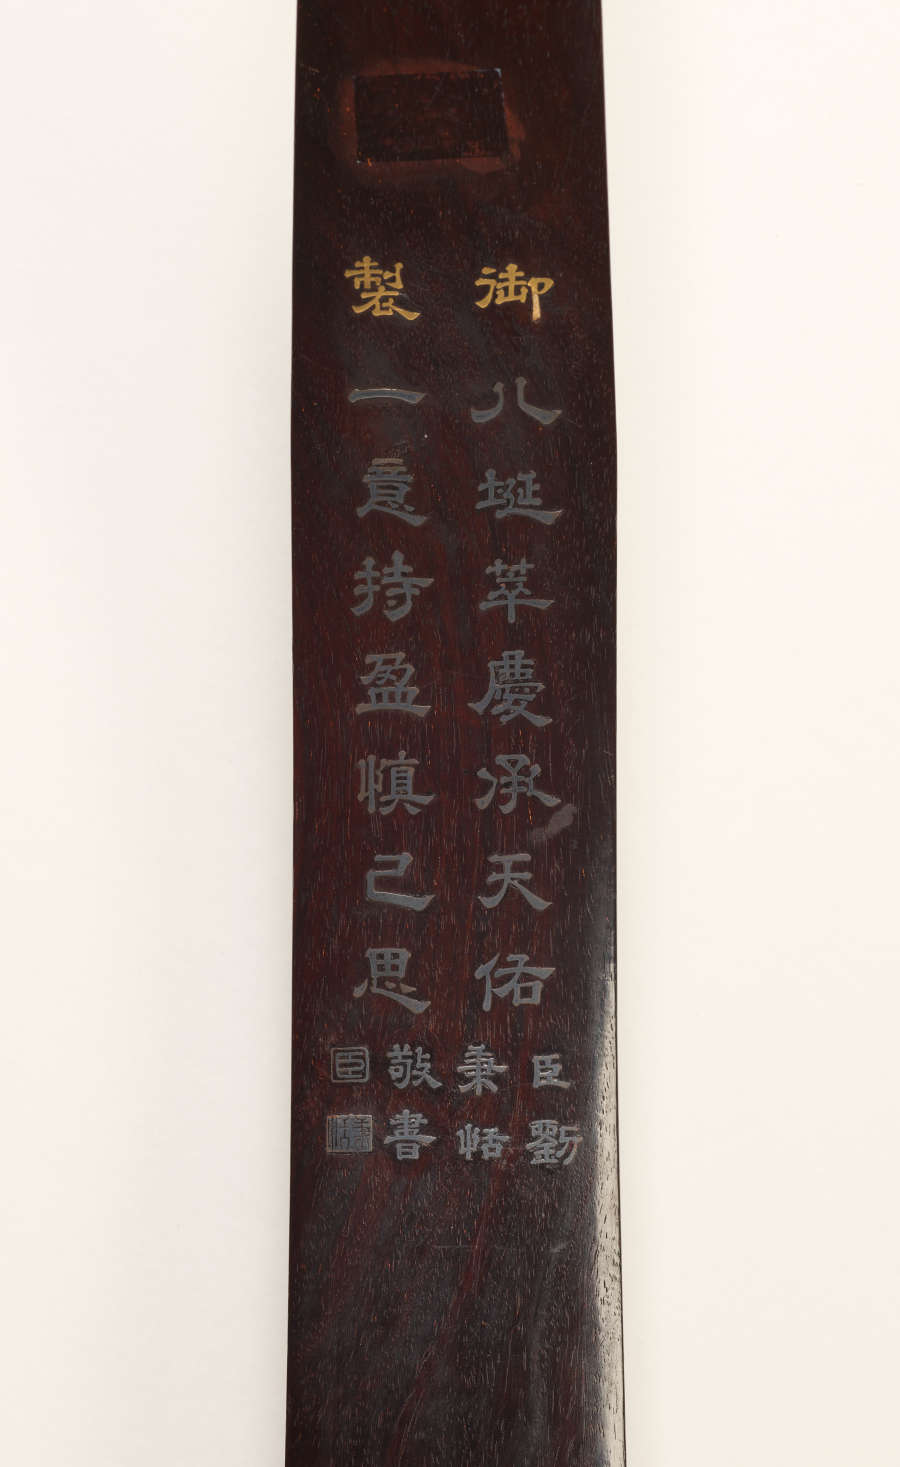 御製
八埏萃慶承天佑
一意持盈慎己思
臣劉
秉恬
敬書
臣